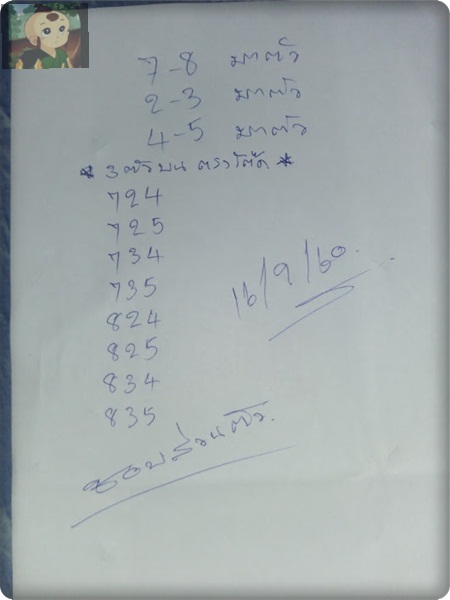 7-8 มาตัว
2-3 มาตัว
4-5 มาตัว
* 3 ตัวบน ตรงโต๊ด *
724
725
734
735
824
825
834
835
16/9/60
ชอบส่วนตัว